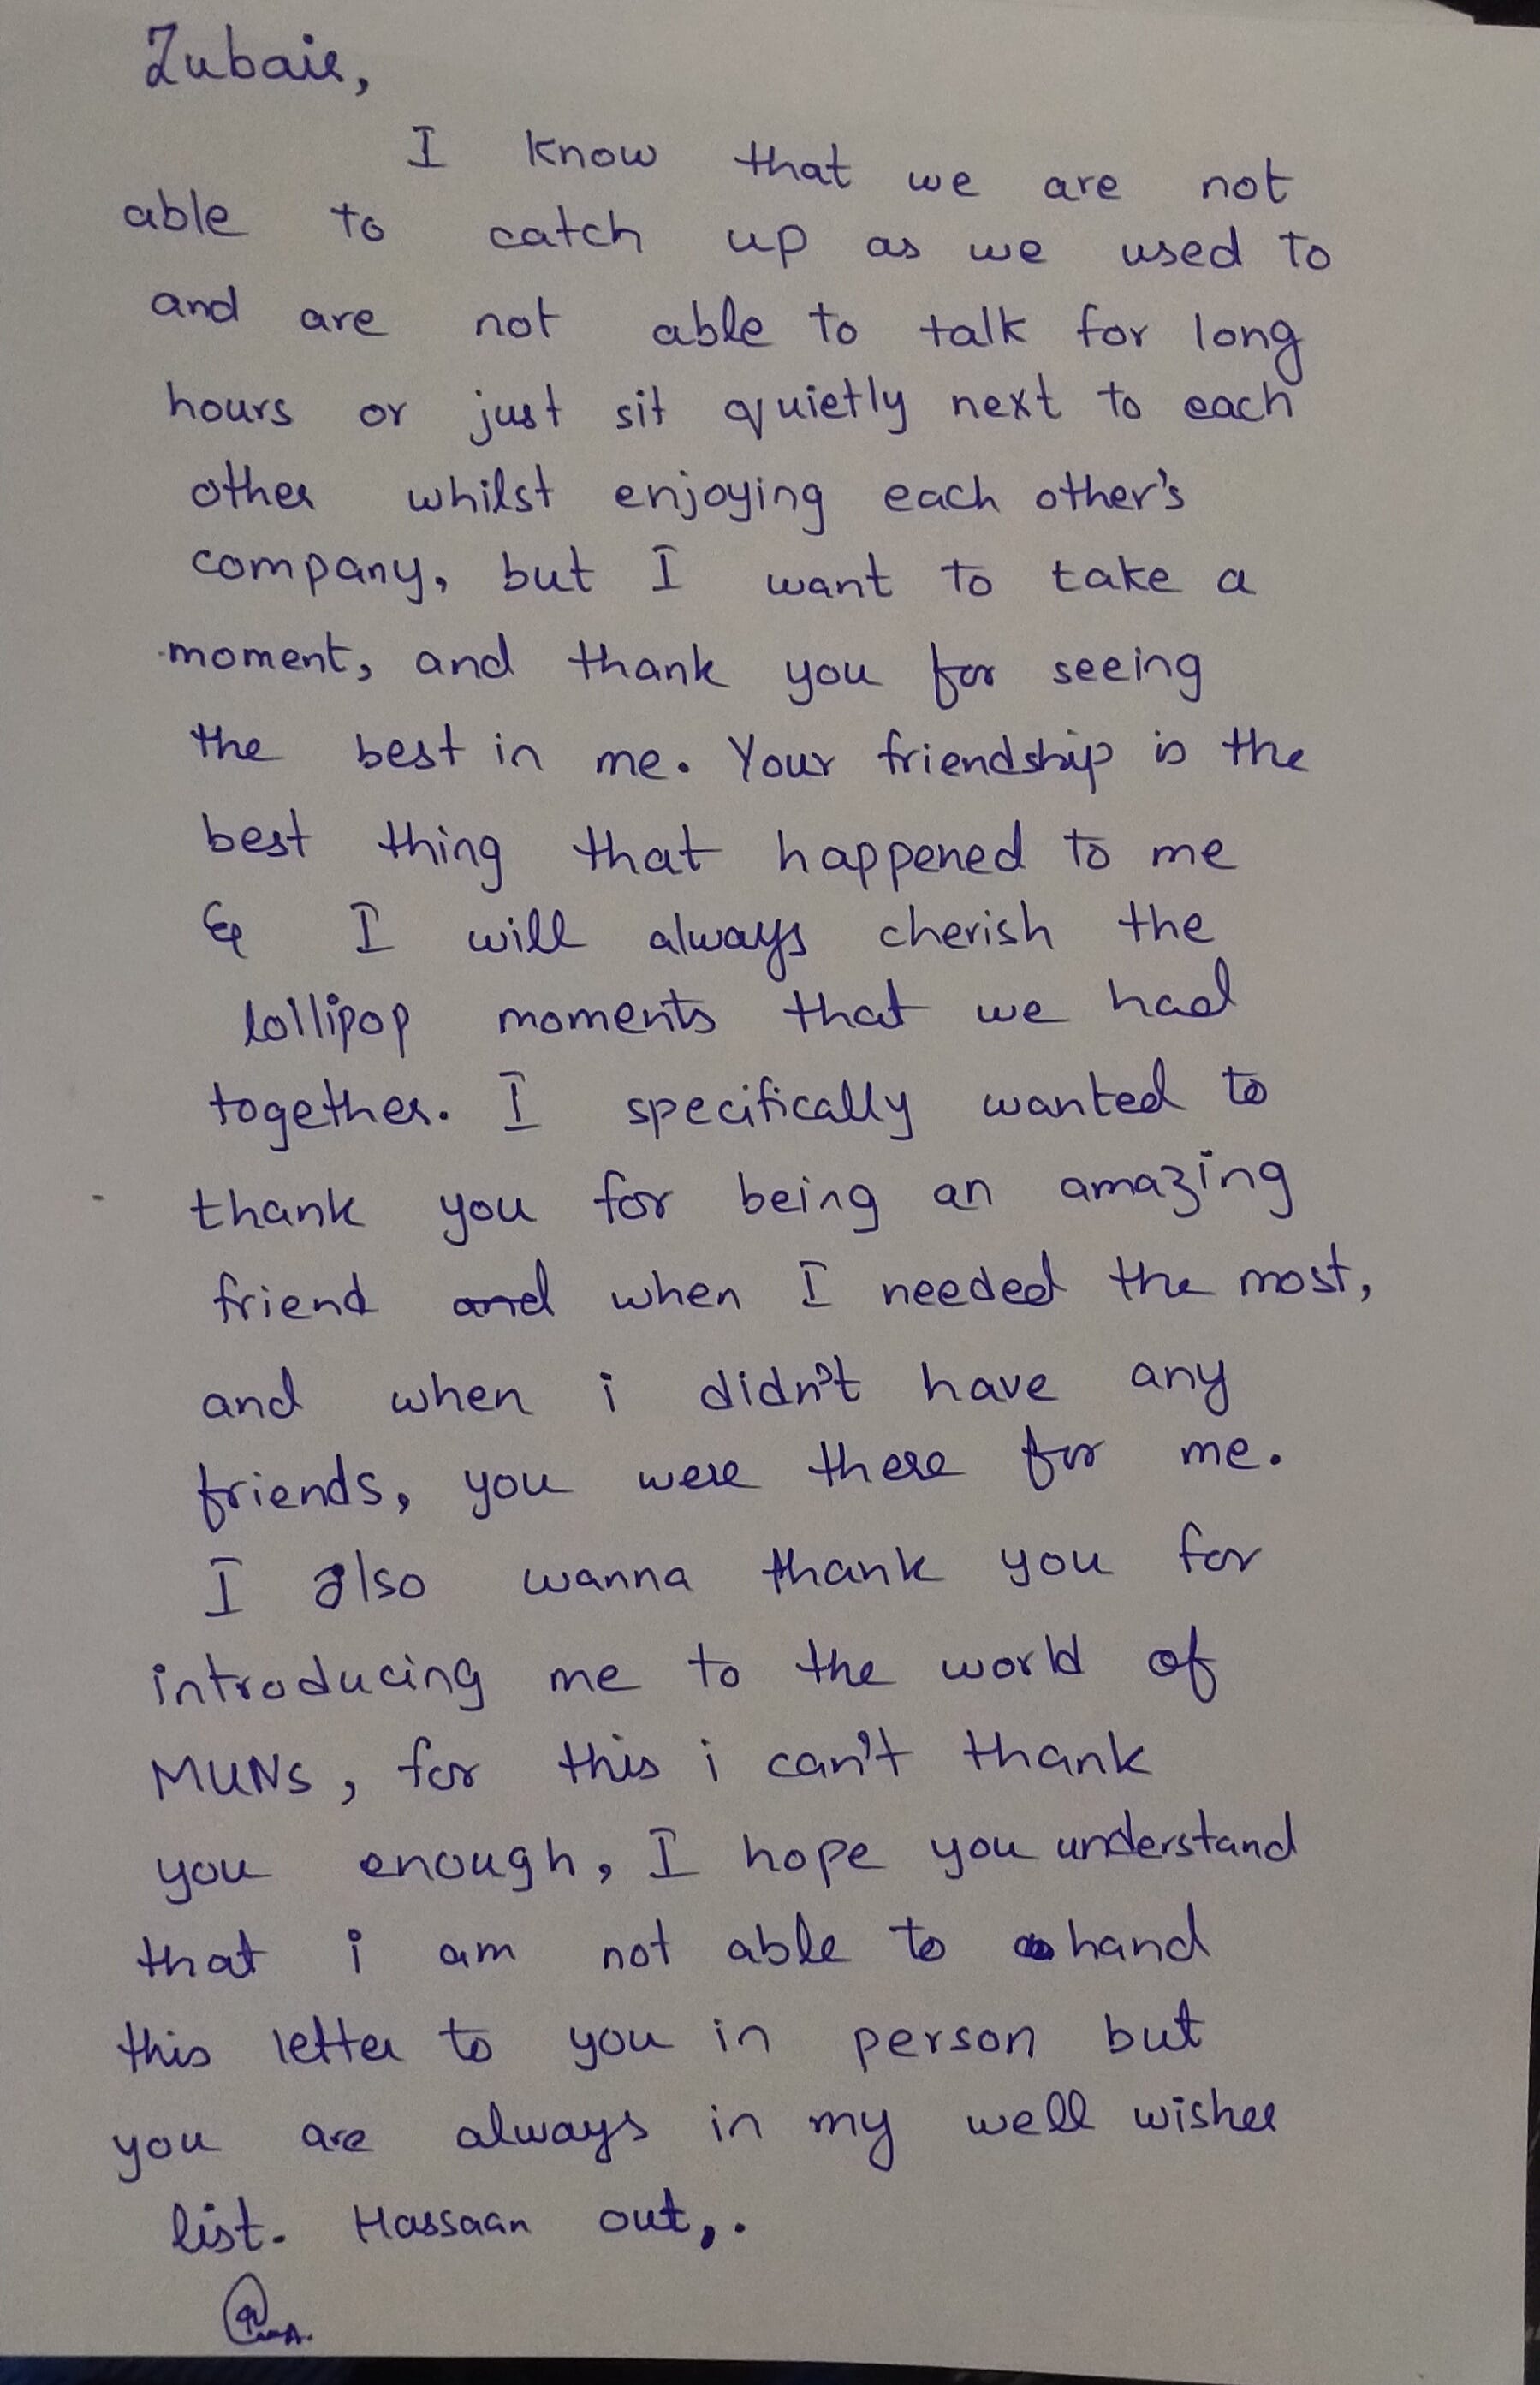 Zubair,
I know that we are not
able to catch up as we used to
and are not able to talk for long
hours or just sit quietly next to each
other whilst enjoying each other's
company, but I want to take a
moment, and thank you for seeing
the best in me. Your friendship is the
best thing that happened to me
& I will always cherish the
lollipop moments that we had
together. I specifically wanted to
thank you for being an amazing
friend and when I needed the most,
and when i didn't have any
friends, you were there for me.
I also wanna thank you for
introducing me to the world of
MUNs, for this i can't thank
you enough, I hope you understand
that i am not able to hand
this letter to you in person but
you are always in my well wisher
list. Hassaan out,.